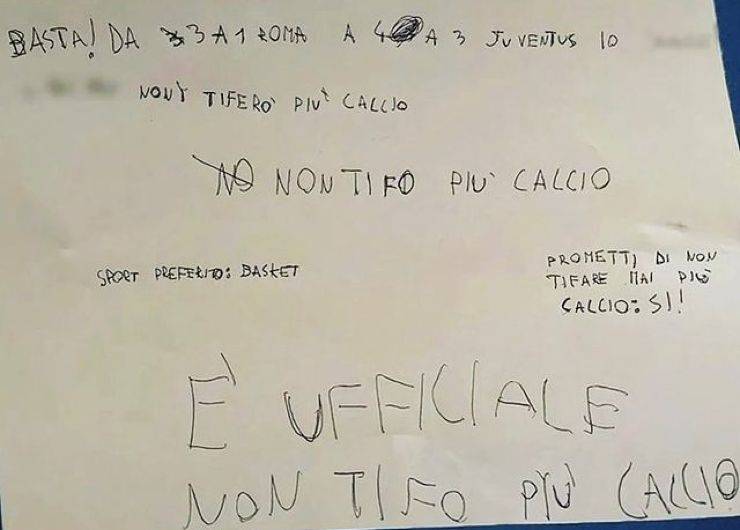 BASTA! DA 3 A 1 ROMA A 4 A 3 JUVENTUS IO
NON TIFERO' PIU' CALCIO
NO NON TIFO PIU' CALCIO
SPORT PREFERITO: BASKET
PROMETTI DI NON
TIFARE MAI PIÙ
CALCIO: SI!
È UFFICIALE
NON TIFO PIU' CALCIO